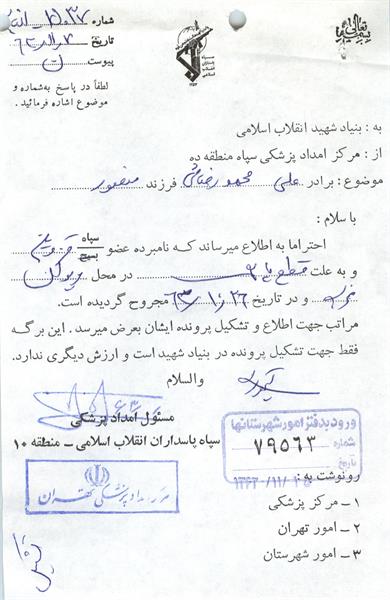 بسمه تعالی
شماره
تاریخ
پیوست
سپاه
پاسداران
انقلاب
اسلامی
لطفاً در پاسخ به شماره و
موضوع اشاره فرمائید.
به : بنیاد شهید انقلاب اسلامی
از : مرکز امداد پزشکی سپاه منطقه ده
موضوع : برادر علی محمودرضا فرزند منصور
با سلام :
احتراما به اطلاع میرساند که نامبرده عضو سپاه بسیج
و به علت قطع پا در محل مریوان
و در تاریخ ۶۳/۱/۲۶ مجروح گردیده است.
مراتب جهت اطلاع و تشکیل پرونده ایشان بعرض میرسد . این برگه
فقط جهت تشکیل پرونده در بنیاد شهید است و ارزش دیگری ندارد.
والسلام
مسئول امداد پزشکی
سپاه پاسداران انقلاب اسلامی – منطقه ۱۰
ورود بدفتر امور شهرستانها
شماره ۷۹۵۶۳
تاریخ
مرکز امداد پزشکی تهران
رونوشت به :
۱ – مرکز پزشکی
۲ – امور تهران
۳ – امور شهرستان